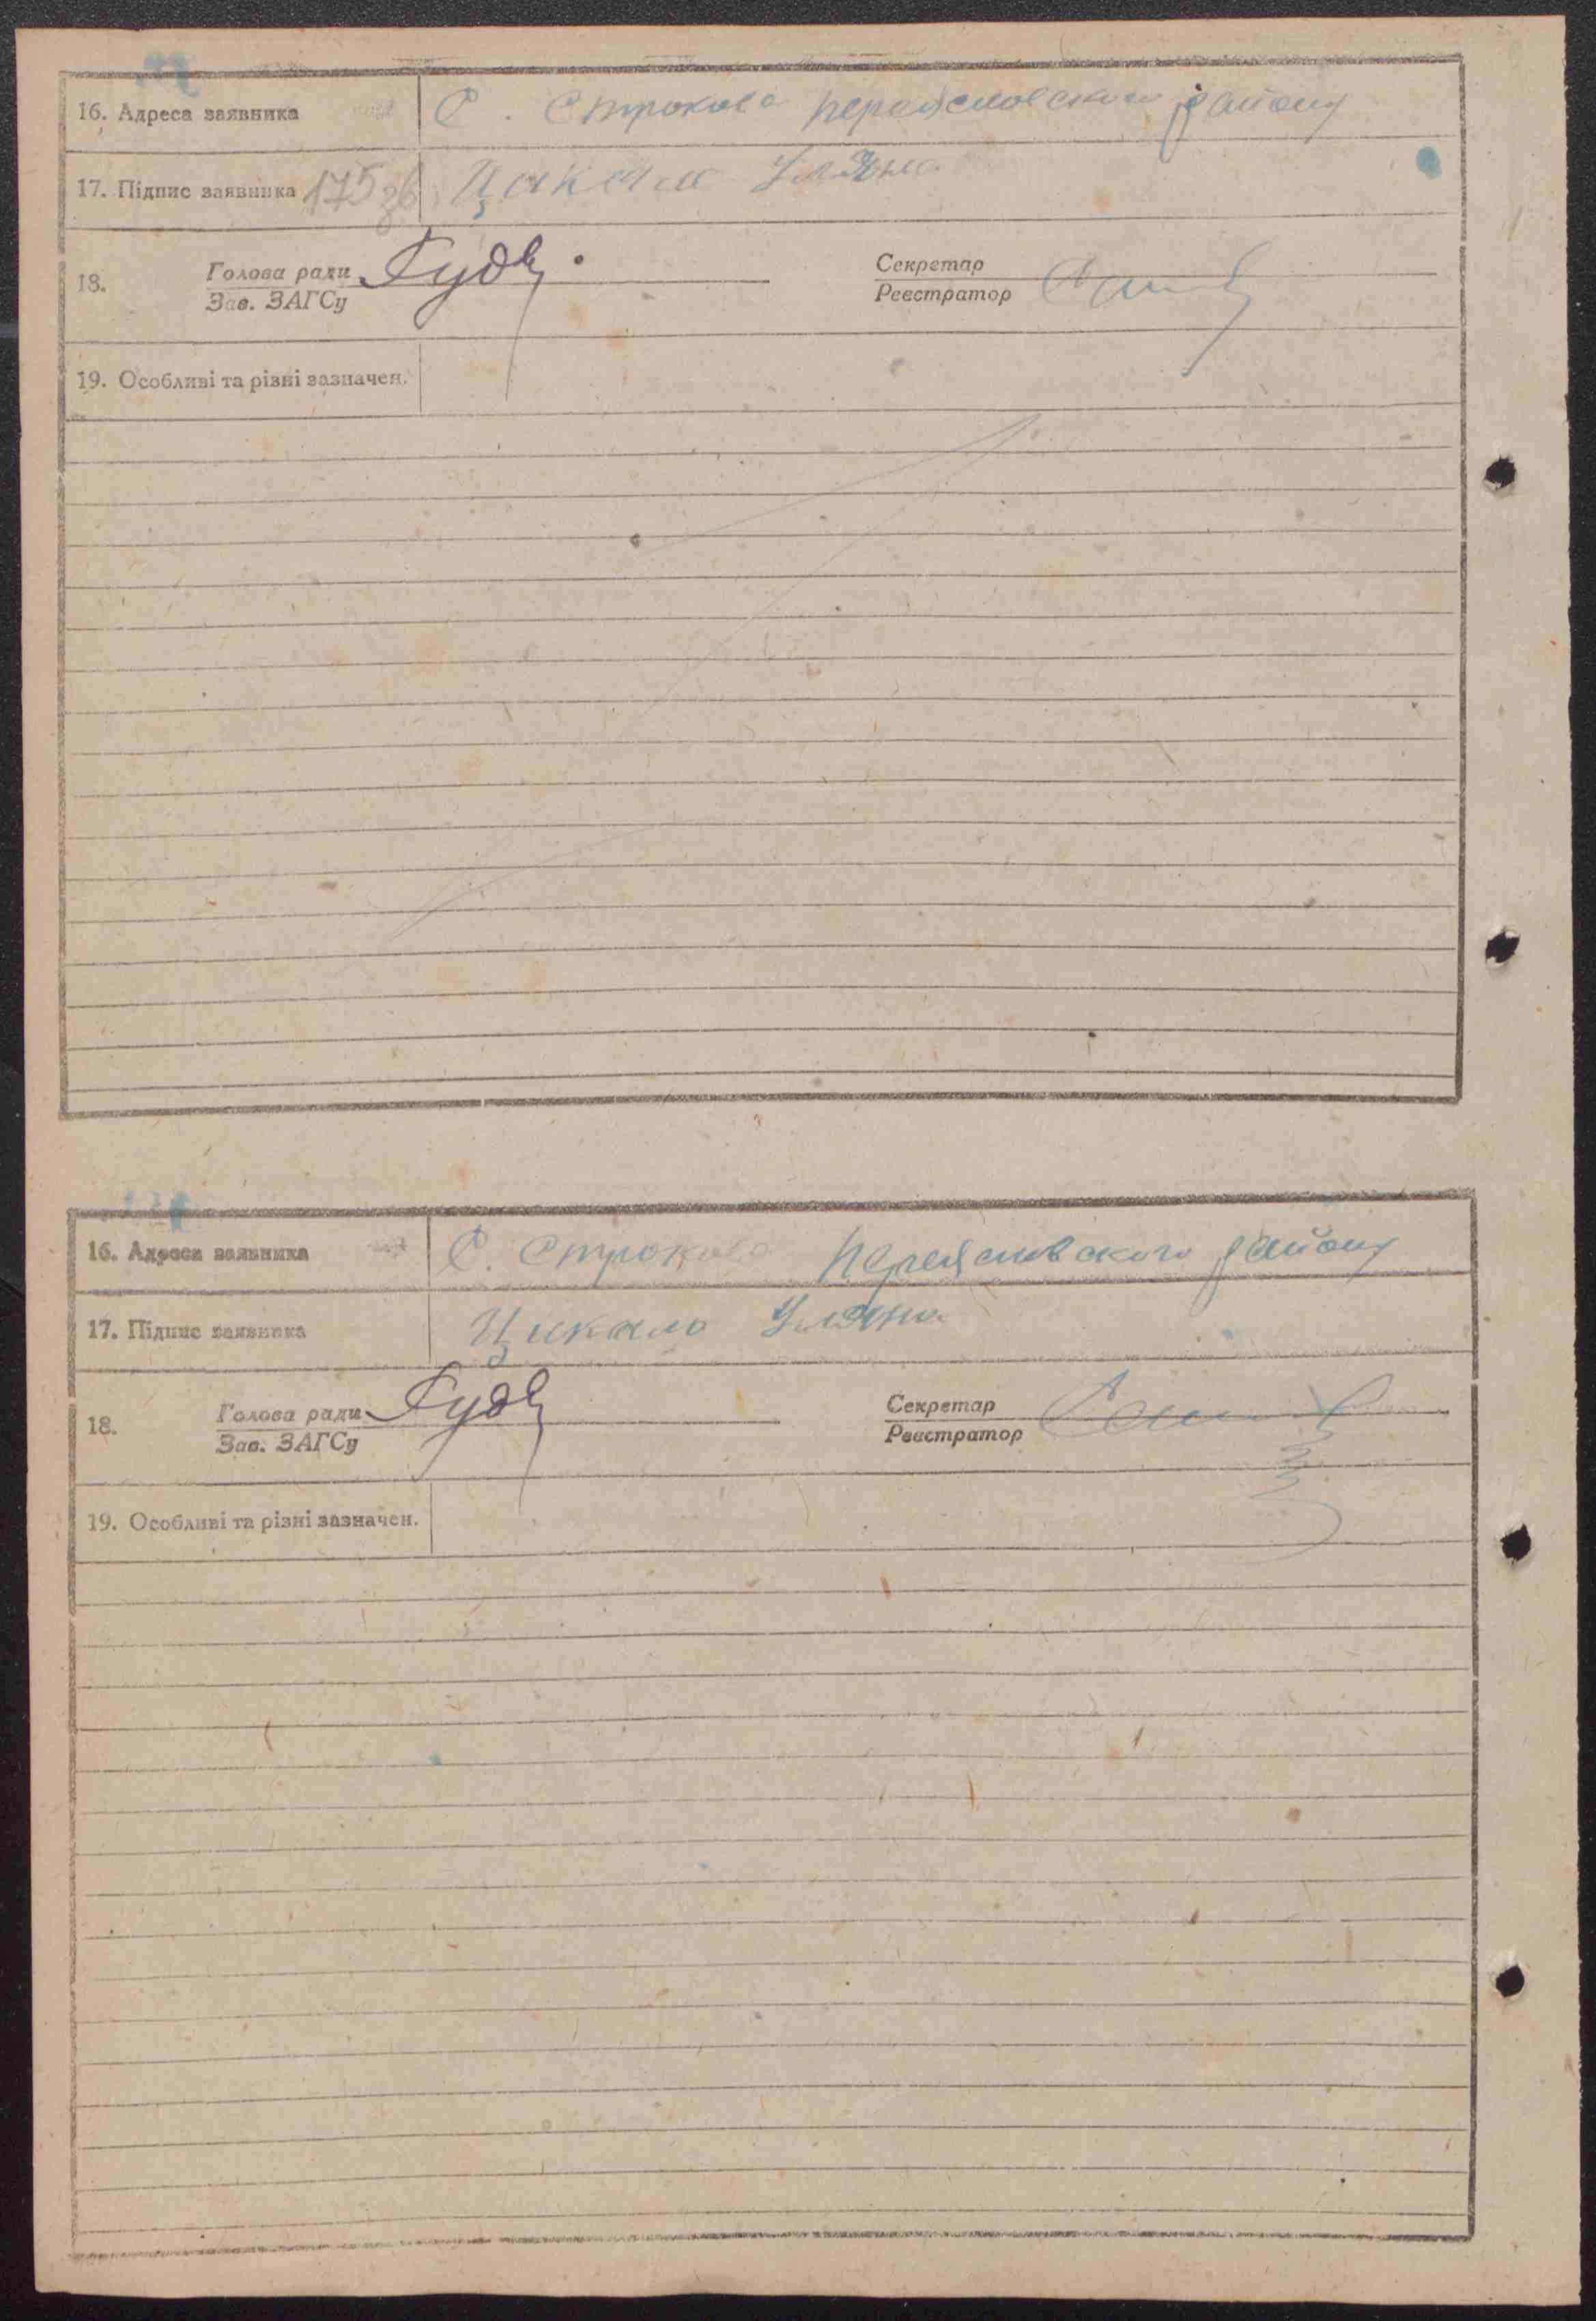 16. Адреса заявника С. Строкова Переяславського району
17. Підпис заявника 175зв Цикало Уляна
18. Голова ради Секретар
Зав. ЗАГСу Реєстратор
19. Особливі та різні зазначен.
16. Адреса заявника С. Строкова Переяславського району
17. Підпис заявника Цикало Уляна
18. Голова ради Секретар
Зав. ЗАГСу Реєстратор
19. Особливі та різні зазначен.